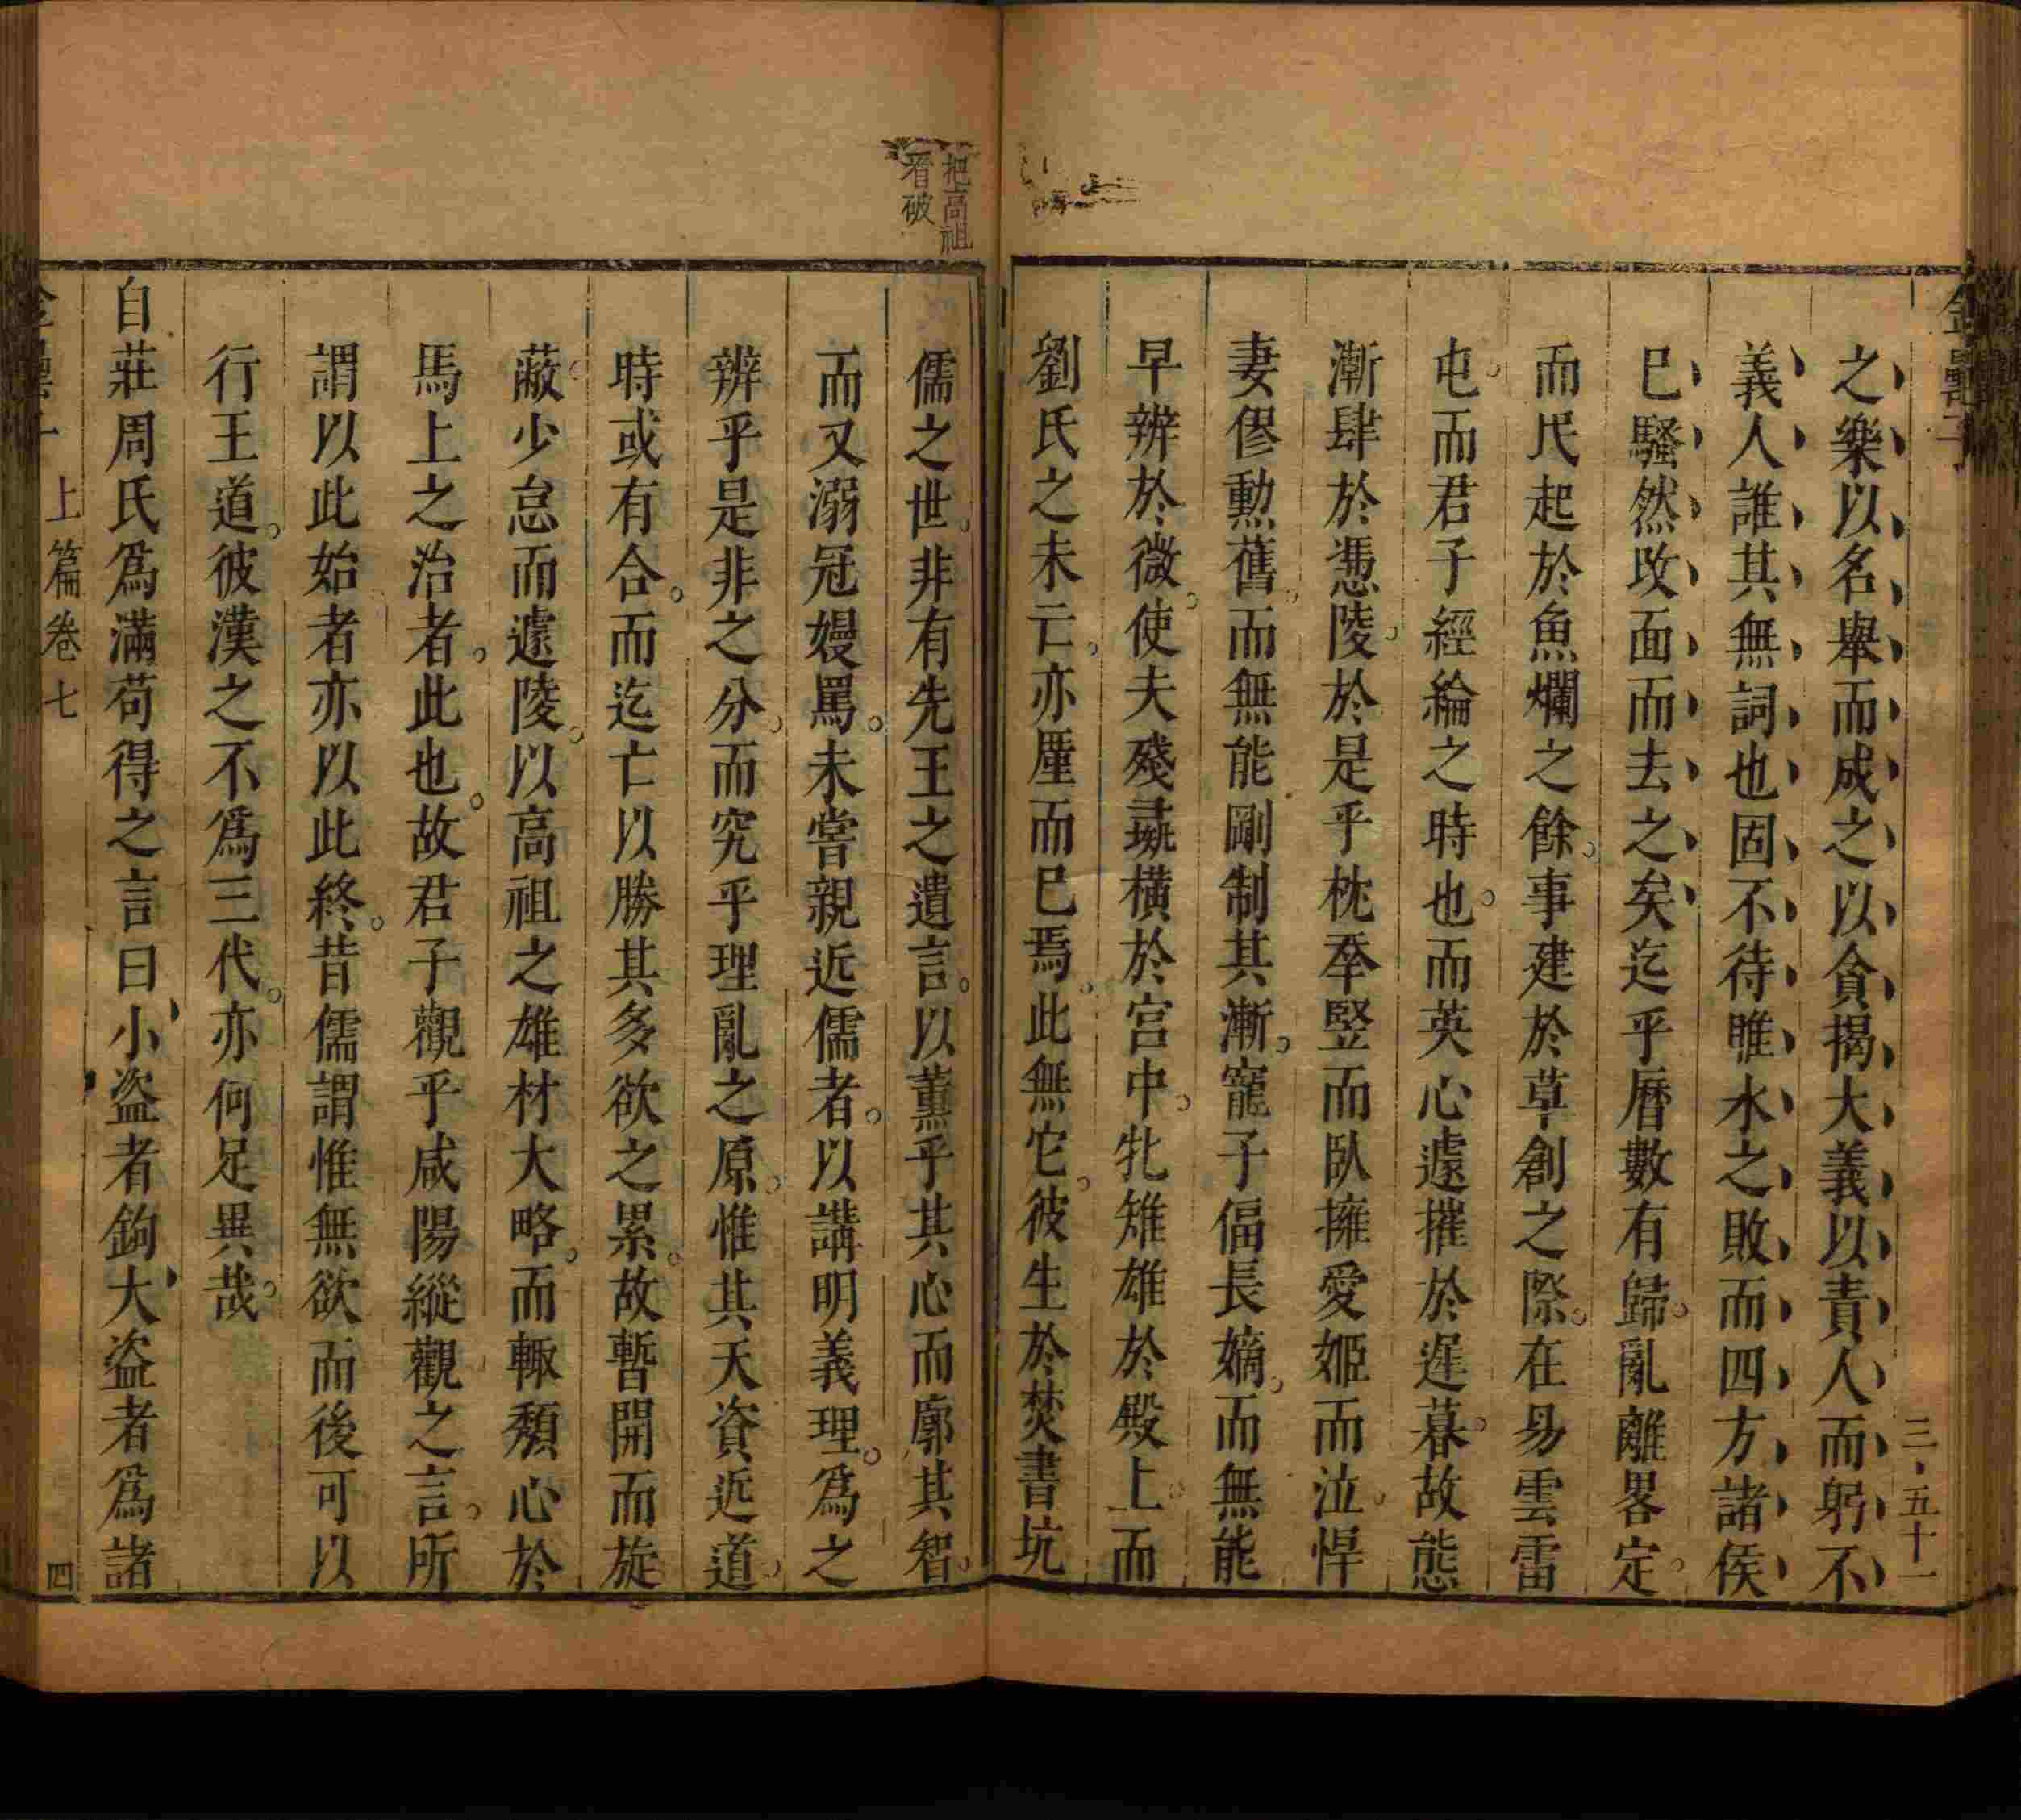 之樂以名舉而成之以貪揭大義以責人而躬不
義人誰其無詞也固不待睢水之敗而四方諸侯
已騷然攻面而去之矣迄乎曆數有歸亂離畧定
而民起於魚爛之餘事建於草創之際在易雲雷
屯而君子經綸之時也而英心遽摧於遲暮故態
漸肆於憑陵於是乎枕奉豎而臥擁愛姬而泣悍
妻僇勲舊而無能剛制其漸寵子偪長嫡而無能
早辨於微使夫殘彘橫於宮中牝雉雄於殿上而
劉氏之未亡亦厪而已焉此無它彼生於焚書坑
三五十一
把高祖
看破
儒之世非有先王之遺言以薰乎其心而廓其智
而又溺冠嫚罵未嘗親近儒者以講明義理爲之
辨乎是非之分而究乎理亂之原惟其天資近道
時或有合而迄亡以勝其多欲之累故暫開而旋
蔽少怠而遽陵以高祖之雄材大略而輙頽心於
馬上之治者此也故君子觀乎咸陽縱觀之言所
謂以此始者亦以此終昔儒謂惟無欲而後可以
行王道彼漢之不爲三代亦何足異哉
自莊周氏爲滿苟得之言曰小盜者鉤大盜者爲諸
上篇卷七
四